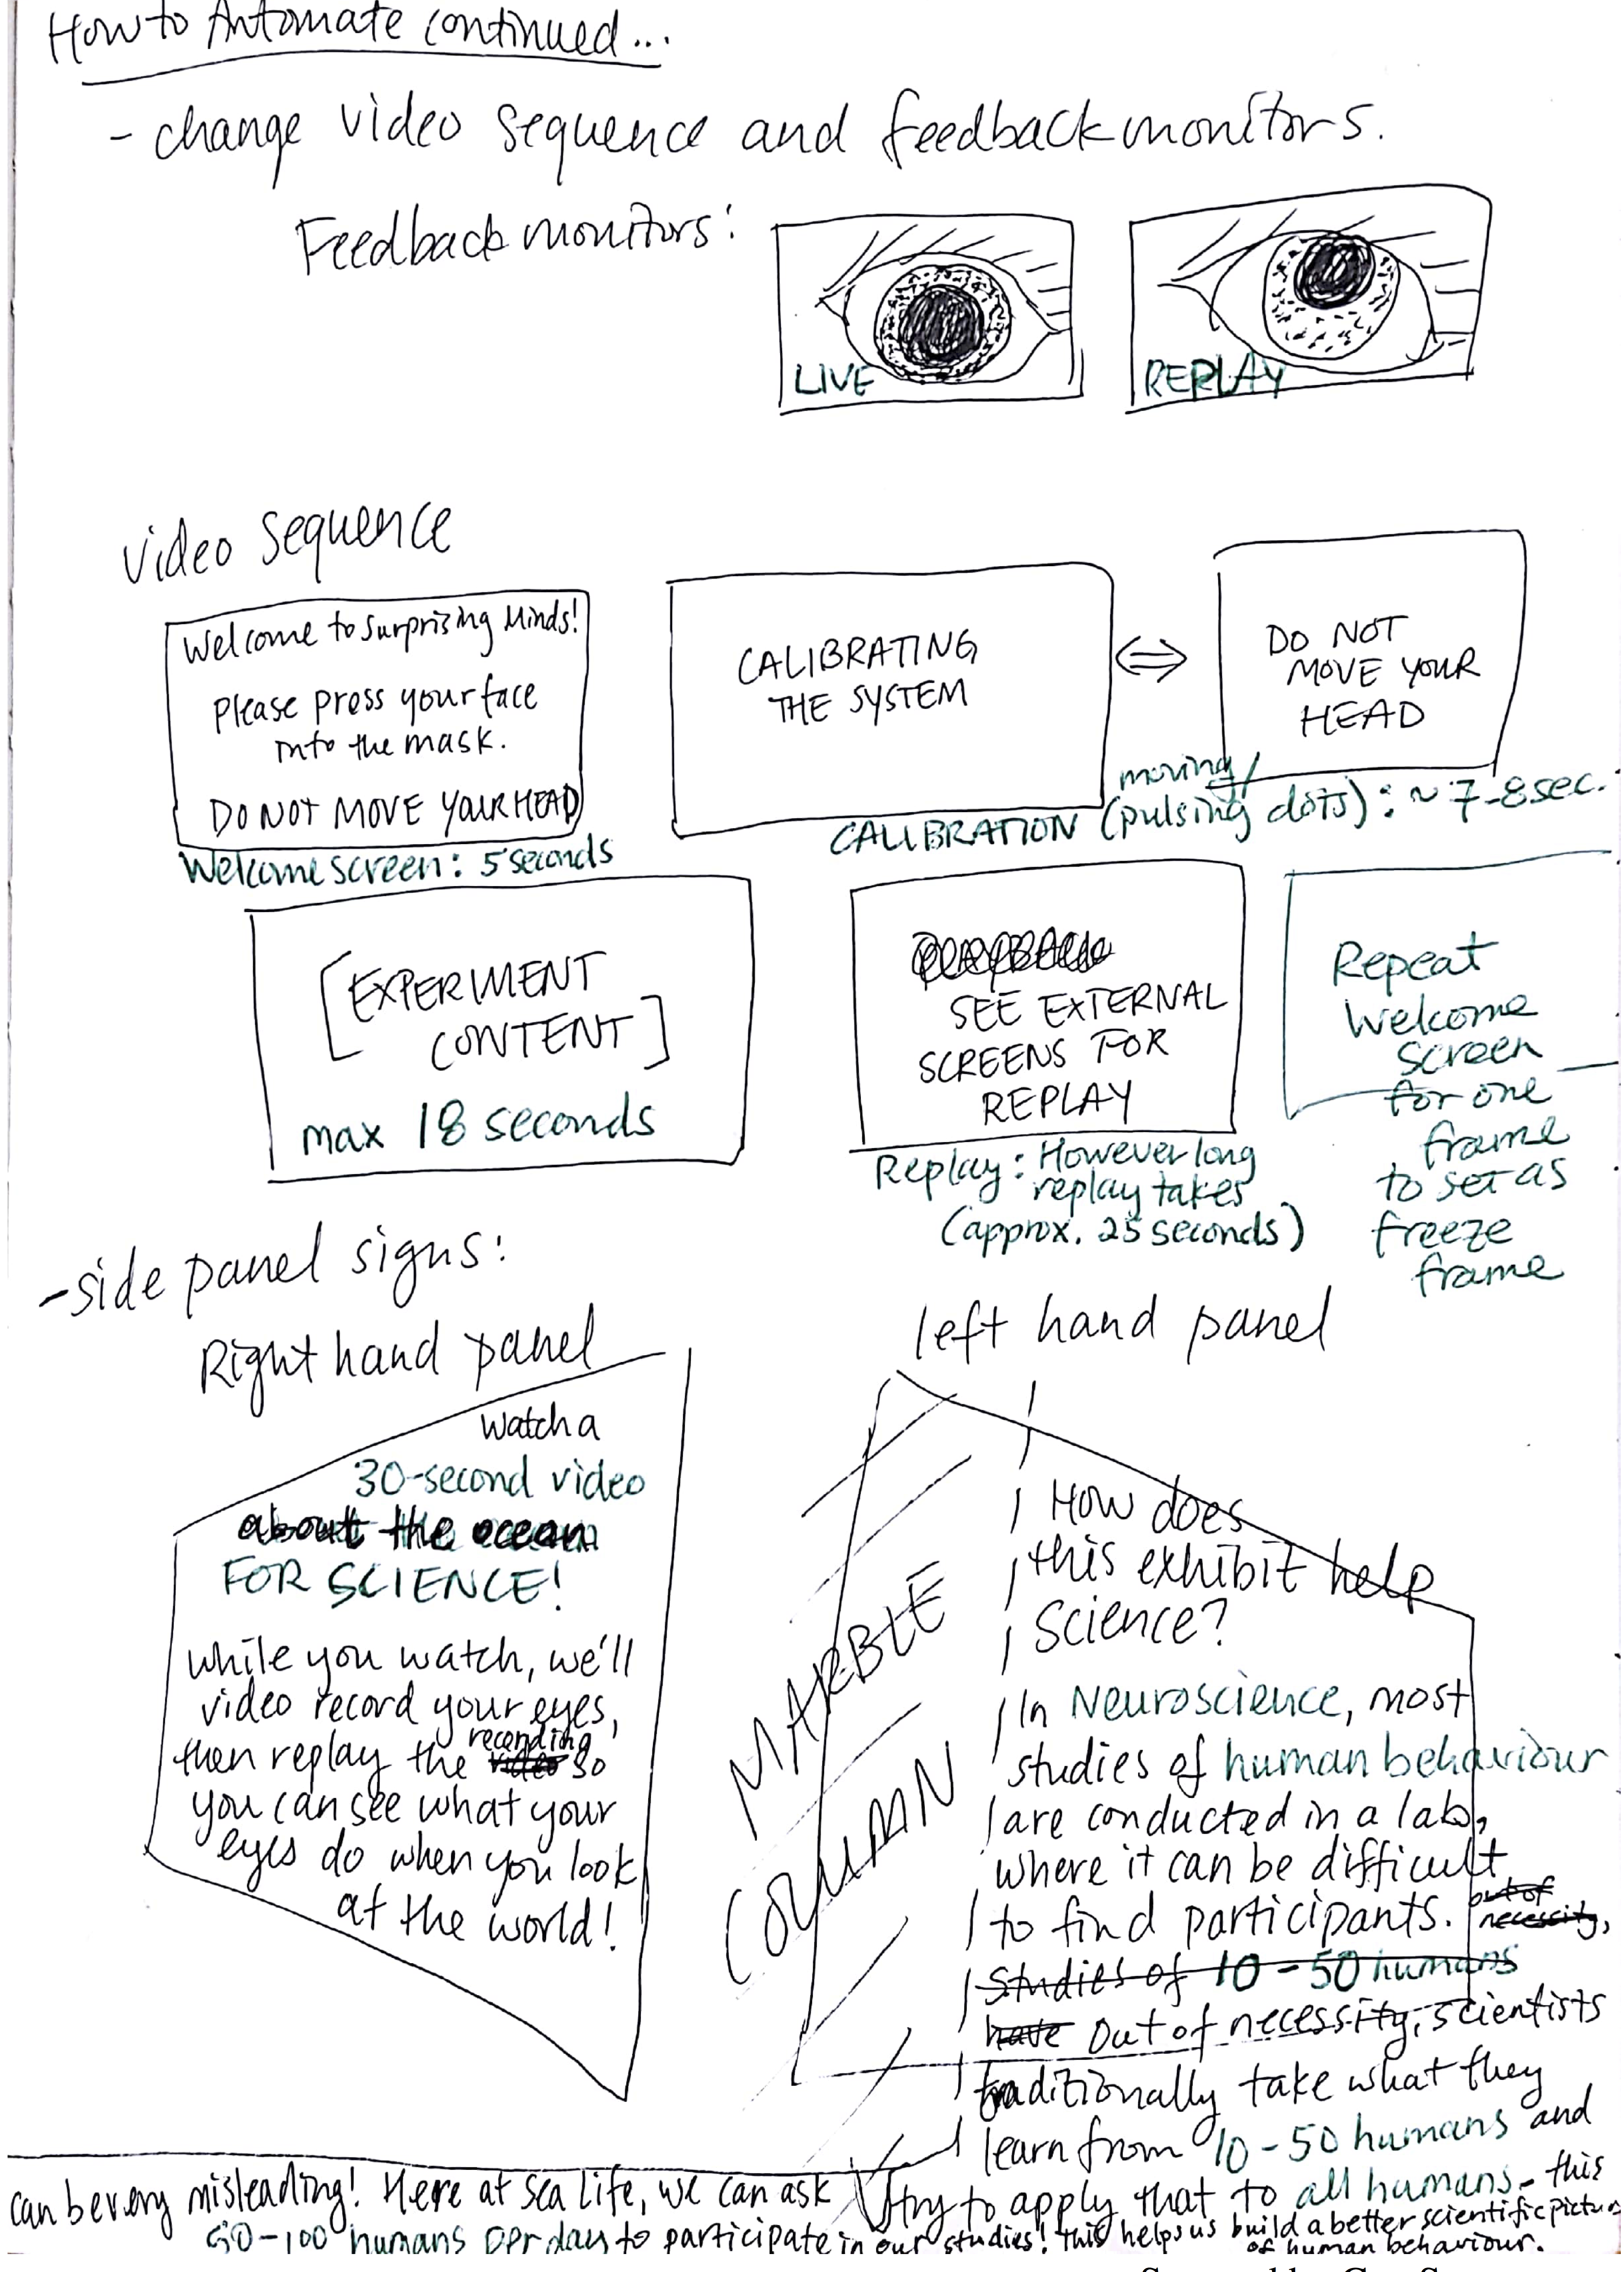 How to Automate continued...
- change video sequence and feedback monitors.
Feedback monitors:
LIVE
REPLAY
video sequence
Welcome to Surprising Minds!
Please press your face
into the mask.
DO NOT MOVE YOUR HEAD
Welcome screen: 5 seconds
CALIBRATING
THE SYSTEM
DO NOT
MOVE YOUR
HEAD
moving/
CALIBRATION (pulsing dots): ~ 7-8 sec.
[EXPERIMENT
CONTENT]
max 18 seconds
SEE EXTERNAL
SCREENS FOR
REPLAY
Replay: However long
replay takes
(approx. 25 seconds)
Repeat
Welcome
screen
for one
frame
to set as
freeze
frame
- side panel signs:
Right hand panel
Watch a
30-second video
about the ocean
FOR SCIENCE!
While you watch, we'll
video record your eyes,
recording
then replay the video so
you can see what your
eyes do when you look
at the world!
left hand panel
MARBLE
COLUMN
How does
this exhibit help
science?
In Neuroscience, most
studies of human behaviour
are conducted in a lab,
where it can be difficult
to find participants. out of
necessity,
Studies of 10-50 humans
have Out of necessity, scientists
traditionally take what they
learn from 10-50 humans and
try to apply that to all humans - this
can be very misleading! Here at Sea Life, we can ask
50-100 humans per day to participate in our studies! This helps us build a better scientific picture
of human behaviour.